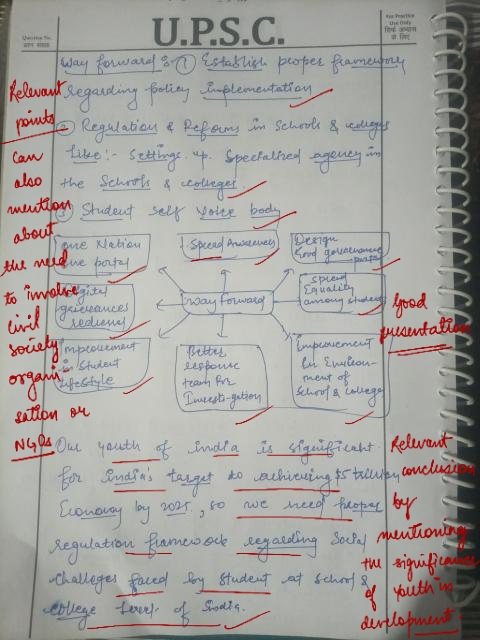 Question No.
प्रश्न संख्या
U.P.S.C.
For Practice
Use Only
सिर्फ अभ्यास
के लिए
Way forward :- ① Establish proper framework
regarding policy implementation
② Regulation & Reforms in Schools & colleges
Like :- Settings up Specialised agency in
the Schools & colleges.
③ Student self voice body
One Nation
one portal
Spread Awareness
Design
Good governance
portal
Digital
grievances
redressal
Way forward
Spread
Equality
among student
Improvement
in Student
Lifestyle
Better
response
team for
Investi-gation
Improvement
in Environ-
ment of
School & college
Our youth of india is significant
for india's target to achieving $5 trillion
Economy by 2025, so we need proper
regulation framework regarding Social
challeges faced by student at School &
college level of India.
Relevant
points
can
also
mention
about
the need
to involve
civil
society
organi-
sation or
NGOs
Good
presentation
Relevant
conclusion
by
mentioning
the significance
of youth in
development.